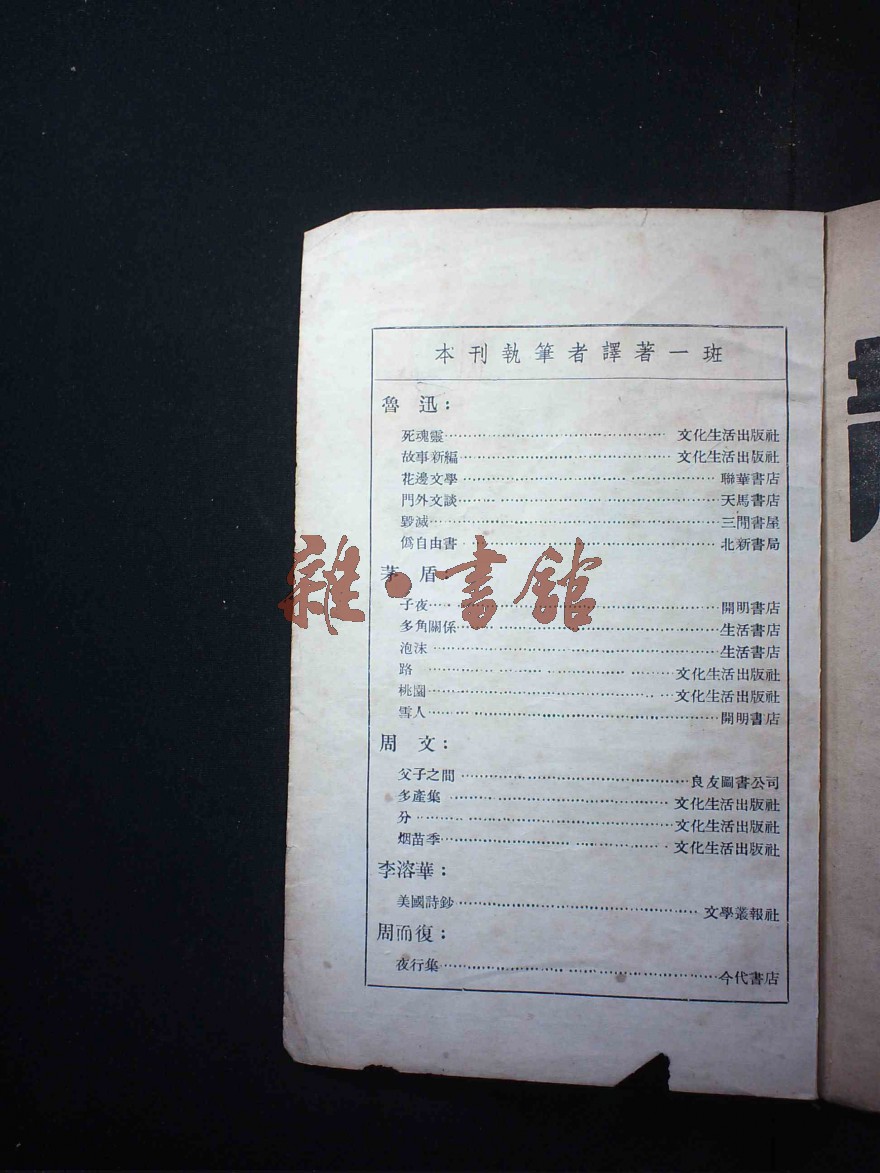 本刊執筆者譯著一班
魯迅：
死魂靈……文化生活出版社
故事新編……文化生活出版社
花邊文學……聯華書店
門外文談……天馬書店
毀滅……三閒書屋
僞自由書……北新書局
茅盾：
子夜……開明書店
多角關係……生活書店
泡沫……生活書店
路……文化生活出版社
桃園……文化生活出版社
雪人……開明書店
周文：
父子之間……良友圖書公司
多產集……文化生活出版社
分……文化生活出版社
烟苗季……文化生活出版社
李溶華：
美國詩鈔……文學叢報社
周而復：
夜行集……今代書店
雜·書館